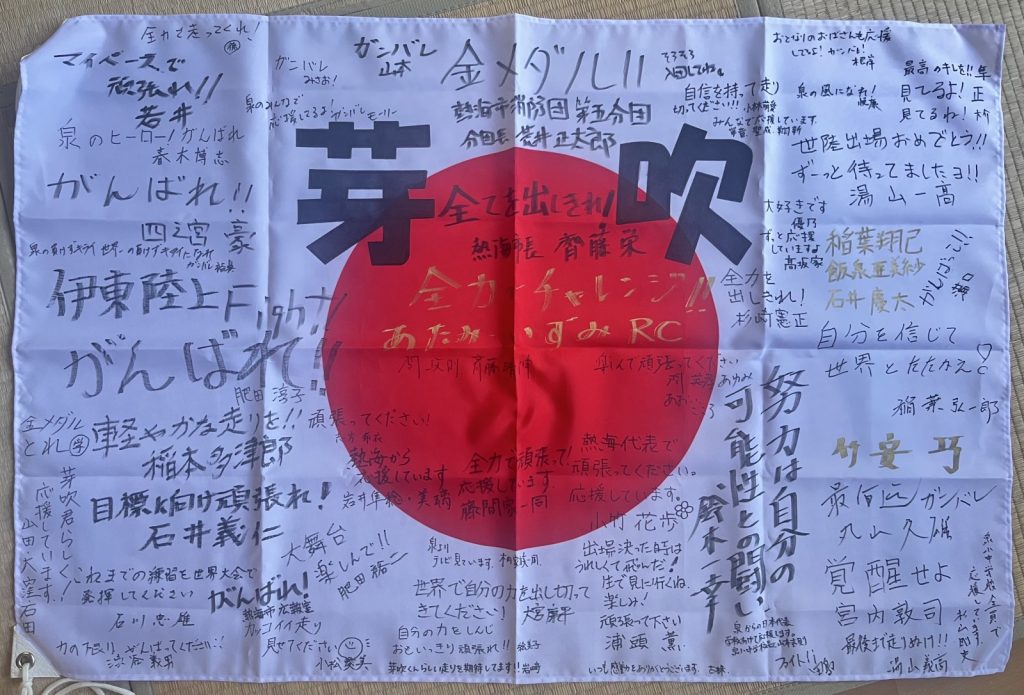 全力で走ってくれ！
マイペースで
頑張れ!!
若井
泉のヒーロー！がんばれ
春木博志
がんばれ!!
四之宮 豪
伊東陸上
がんばれ!!
肥田 淳子
ガンバレ
みさお！
泉のみんなで
応援してるよ！ガンバレ
ガンバレ
山本
金メダル!!
熱海市消防団 第五分団
分団長 荒井正太郎
そろそろ
入団してね。
自信を持って走り
切ってください!!
みんなで応援しています。
おとなりのおばさんも応援
してるよ！ガンバレ！
泉の風になれ！
最高のキレを!!
見てるよ！
見てるわ！
世陸出場おめでとう!!
ずーっと待ってましたョ!!
湯山一高
芽吹
全てを出しきれ！
熱海市長 齊藤 栄
全力チャレンジ!!
あたみ いずみ RC
大好きです
優乃
ずっと応援
していますね
高坂家
全力を
出しきれ！
杉崎憲正
稲葉翔己
飯泉亜美紗
石井慶太
がんばっ!!
自分を信じて
世界とたたかえ
稲葉弘一郎
楽しんで頑張ってください
金メダル
とれ
軽やかな走りを!!
稲本多津郎
頑張ってください！
目標に向け頑張れ！
石井義仁
熱海から
応援しています
全力で頑張って！
応援しています
藤間家一同
熱海代表で
頑張ってください。
応援しています。
山竹 花歩
努力は自分の
可能性との闘い
鈴木一幸
竹安 巧
最何迄ガンバレ
丸山久雄
覚醒せよ
宮内敦司
最後まで走りぬけ!!
湯山義高
芽吹君らしく！
応援しています！
これまでの練習を世界大会で
発揮してください
石川忠雄
大舞台
楽しんで!!
肥田 裕二
がんばれ！
カッコイイ走り
見せてください
小松
泉より
テレビ見ています。
世界で自分の力を出し切って
きてください！
大宮康平
自分の力をしんじ
おもいっきり頑張れ!!
芽吹くんらしい走りを期待してます!!岩崎
出場決った時は
うれしくて飛んだ！
生で見に行くね。
楽しみ！
頑張って下さい
浦頭 薫
いつも感動をありがとうございます。
泉からの日本代表
ファイト!!